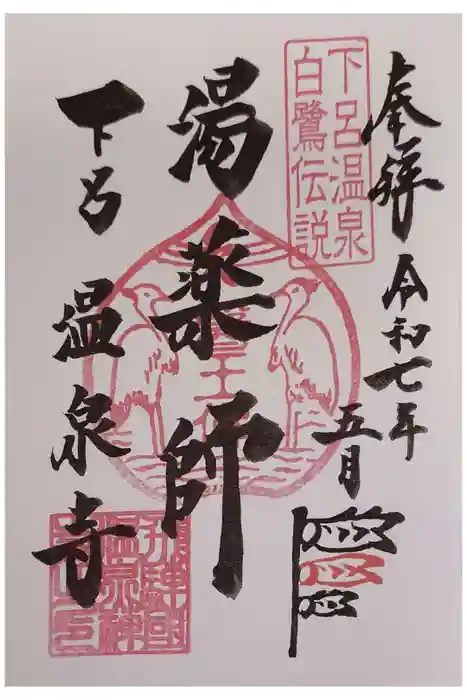 奉拝
令和七年
五月
下呂温泉
白鷺伝説
湯薬師
下呂
温泉寺